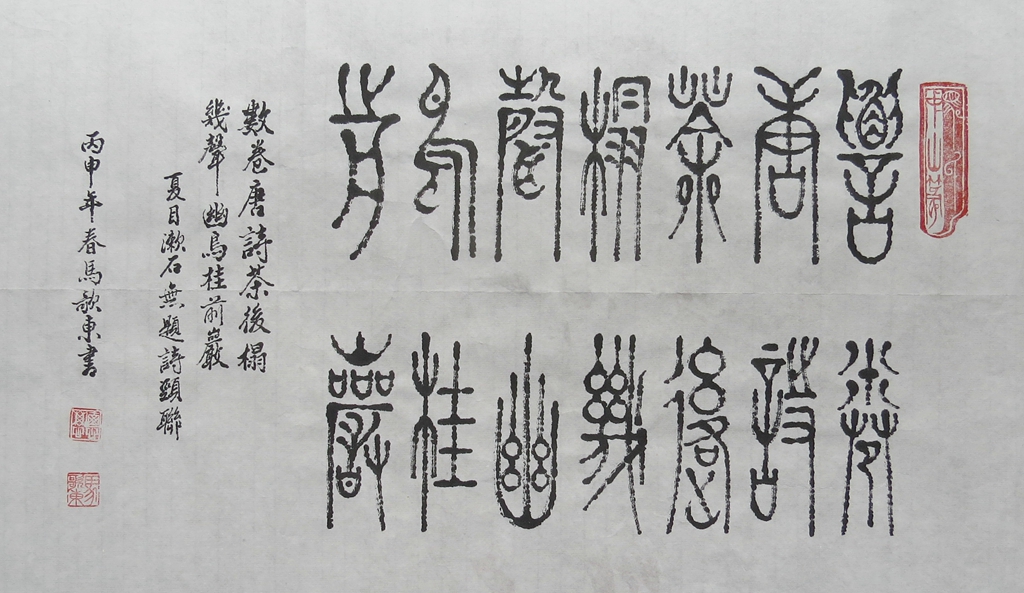 數卷
唐詩
茶後
榻幾
聲幽
鳥桂
前巖
數卷唐詩茶後榻
幾聲幽鳥桂前巖
夏目漱石無題詩頸聯
丙申年春馬歌東書
馬歌東